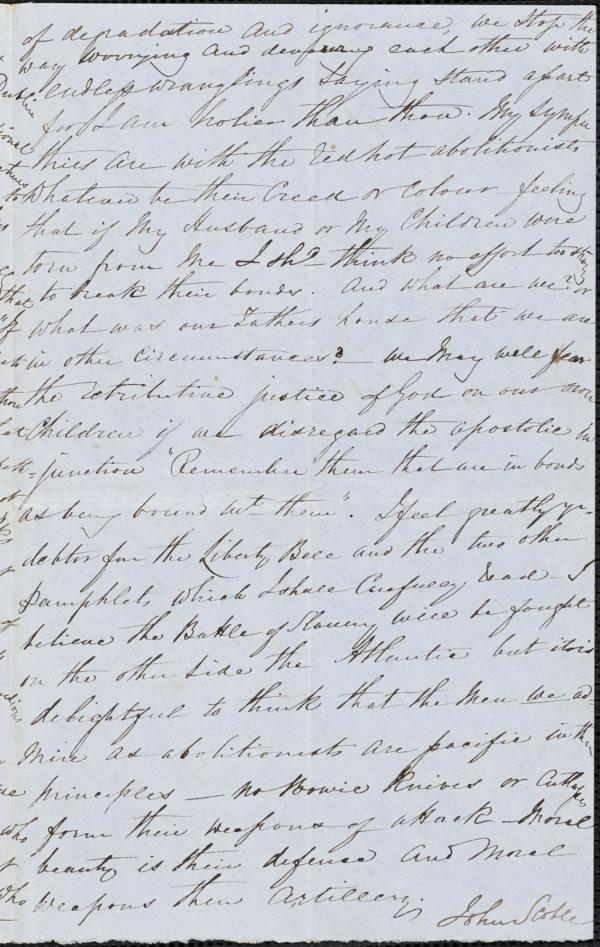 of degradation and ignorance, we stop the
way worrying and devouring each other with
endless wranglings saying stand apart
for I am holier than thou. My sympa
thies are with the red hot abolitionists
Whatever be their Creed or Colour feeling
that if My Husband or My Children were
torn from Me I shd. think no effort too
to break their bonds. And what are we? or
what was our Fathers house that we are
in other Circumstances? we May well fear
the retributive justice of God on our own
Children if we disregard the apostolic in
=junction "Remember them that are in bonds
as being bound wt. them". I feel greatly yr.
debtor for the Liberty Bell and the two other
Pamphlets which I shall Carefully read - I
believe the Battle of Slavery will be fought
on the other side the Atlantic but it is
delightful to think that the Men we ad=
Mire as abolitionists are pacific in their
principles — no Bowie Knives or Cutlasses
form their weapons of attack - Moral
beauty is their defence and Moral
weapons their Artillery.
John Scoble